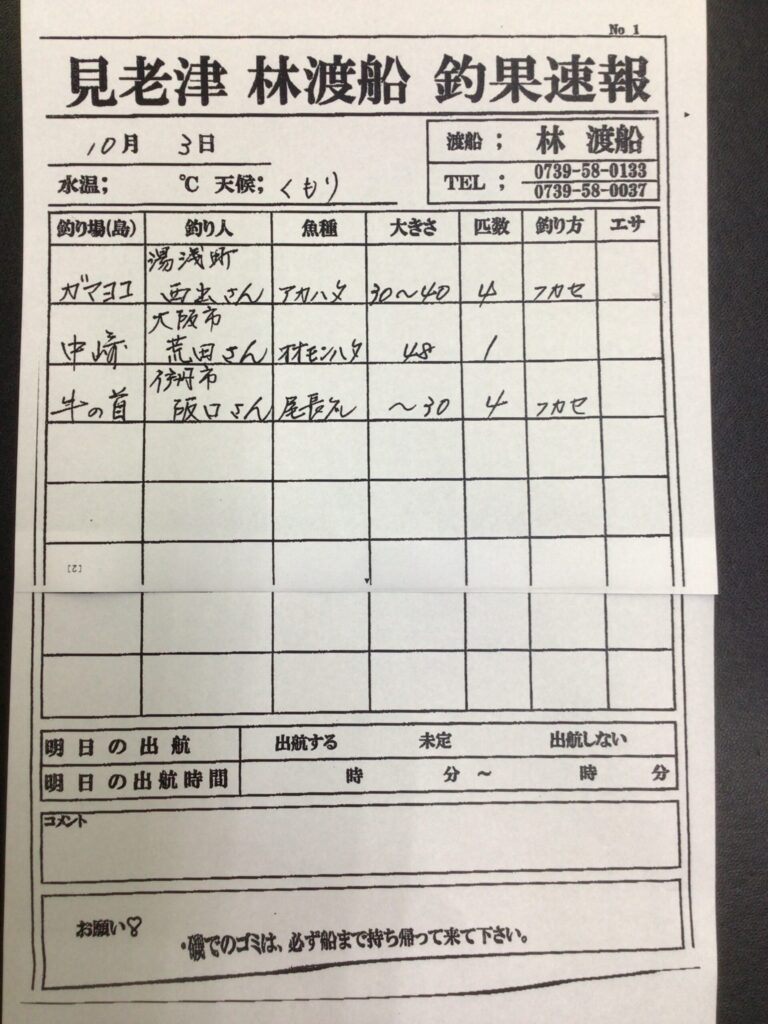 No 1
見老津 林渡船 釣果速報
10月 3日
渡船； 林 渡船
水温； ℃ 天候； くもり
TEL； 0739-58-0133
0739-58-0037
釣り場(島) 釣り人 魚種 大きさ 匹数 釣り方 エサ
湯浅町
ガマヨコ 西出さん アカハタ 30〜40 4 フカセ
大阪市
中崎 荒田さん オオモンハタ 48 1
伊丹市
牛の首 阪口さん 尾長グレ 〜30 4 フカセ
[2]
明日の出航 出航する 未定 出航しない
明日の出航時間 時 分 〜 時 分
コメント
お願い♡
・磯でのゴミは、必ず船まで持ち帰って来て下さい。